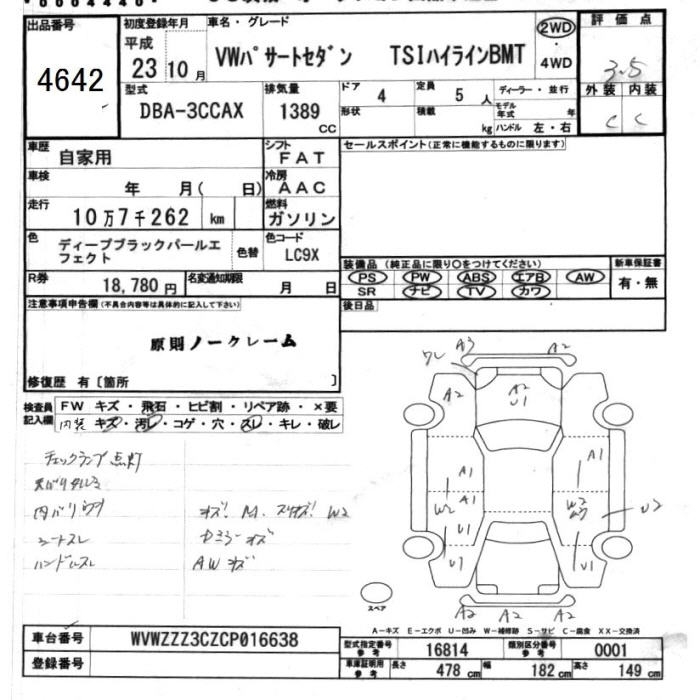 出品番号 初度登録年月 車名・グレード 評価点
4642
平成
23 10 月 VWパサートセダン TSIハイラインBMT 2WD ・ 4WD 3.5
外装 内装
C C
型式 排気量 ドア 定員 ディーラー・並行
DBA-3CCAX 1389 CC 4 5 人
形状 積載 kg モデル年式 年
ハンドル 左・右
車歴 自家用 シフト FAT セールスポイント(正常に機能するものに限ります)
車検 年 月( 日) 冷房 AAC
走行 10万7千262 km 燃料 ガソリン
色 ディープブラックパールエフェクト 色替 色コード LC9X
装備品 (純正品に限り○をつけてください) 新車保証書
PS PW ABS エアB AW 有・無
SR ナビ TV カワ
R券 18,780 円 名変通知期限 月 日
後日品
注意事項申告欄(不具合内容等は具体的に記入して下さい)
原則ノークレーム
修復歴 有〔箇所 〕
検査員記入欄 FW キズ・飛石・ヒビ割・リペア跡・×要
内装 キズ・汚レ・コゲ・穴・スレ・キレ・破レ
チェックランプ点灯
シートスレ
ハンドルスレ AWキズ
ワレ A3 A2
A2 A2 U1
A1 A1
W2 A1 W2
U1 U2
U1 U1
A2 A2 A2
スペア
A-キズ E-エクボ U-凹み W-補修跡 S-サビ C-腐食 XX-交換済
車台番号 WVWZZZ3CZCP016638
登録番号
型式指定番号 参考 16814 類別区分番号 参考 0001
車庫証明用 参考 長さ 478 cm 幅 182 cm 高さ 149 cm